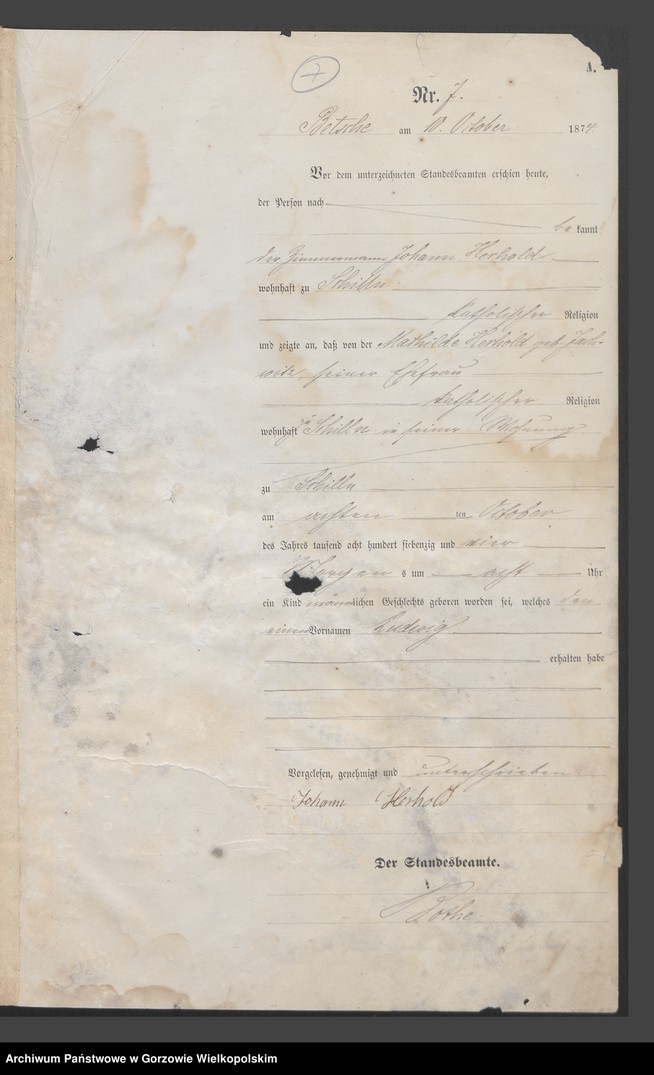 7
A.
Nr. 7.
Betsche am 10. October 1874.
Vor dem unterzeichneten Standesbeamten erschien heute,
der Person nach
be kannt
der Zimmermann Johann Herhold
wohnhaft zu Schilln
katholischer Religion
und zeigte an, daß von der Mathilde Herhold geb. Jach-
witz seiner Ehefrau
katholischer Religion
wohnhaft zu Schilln in seiner Wohnung
zu Schilln
am achten ten October
des Jahres tausend acht hundert siebenzig und vier
Morgens um acht Uhr
ein Kind männlichen Geschlechts geboren worden sei, welches den
einen Vornamen Ludwig
erhalten habe
Vorgelesen, genehmigt und unterschrieben
Johann Herhold
Der Standesbeamte.
Archiwum Państwowe w Gorzowie Wielkopolskim